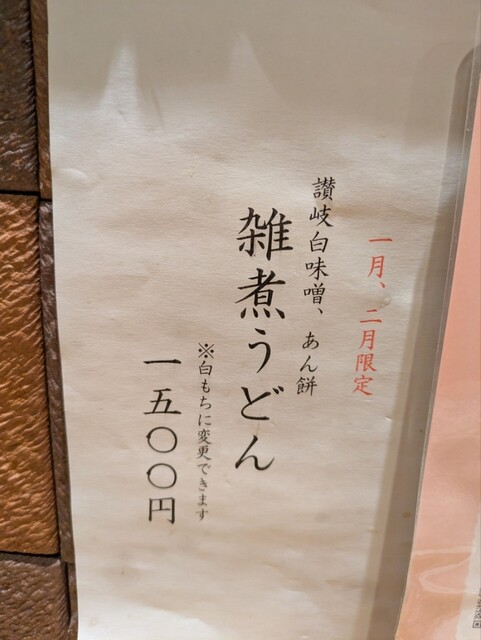 一月、二月限定
讃岐白味噌、あん餅
雑煮うどん
※白もちに変更できます
一五〇〇円